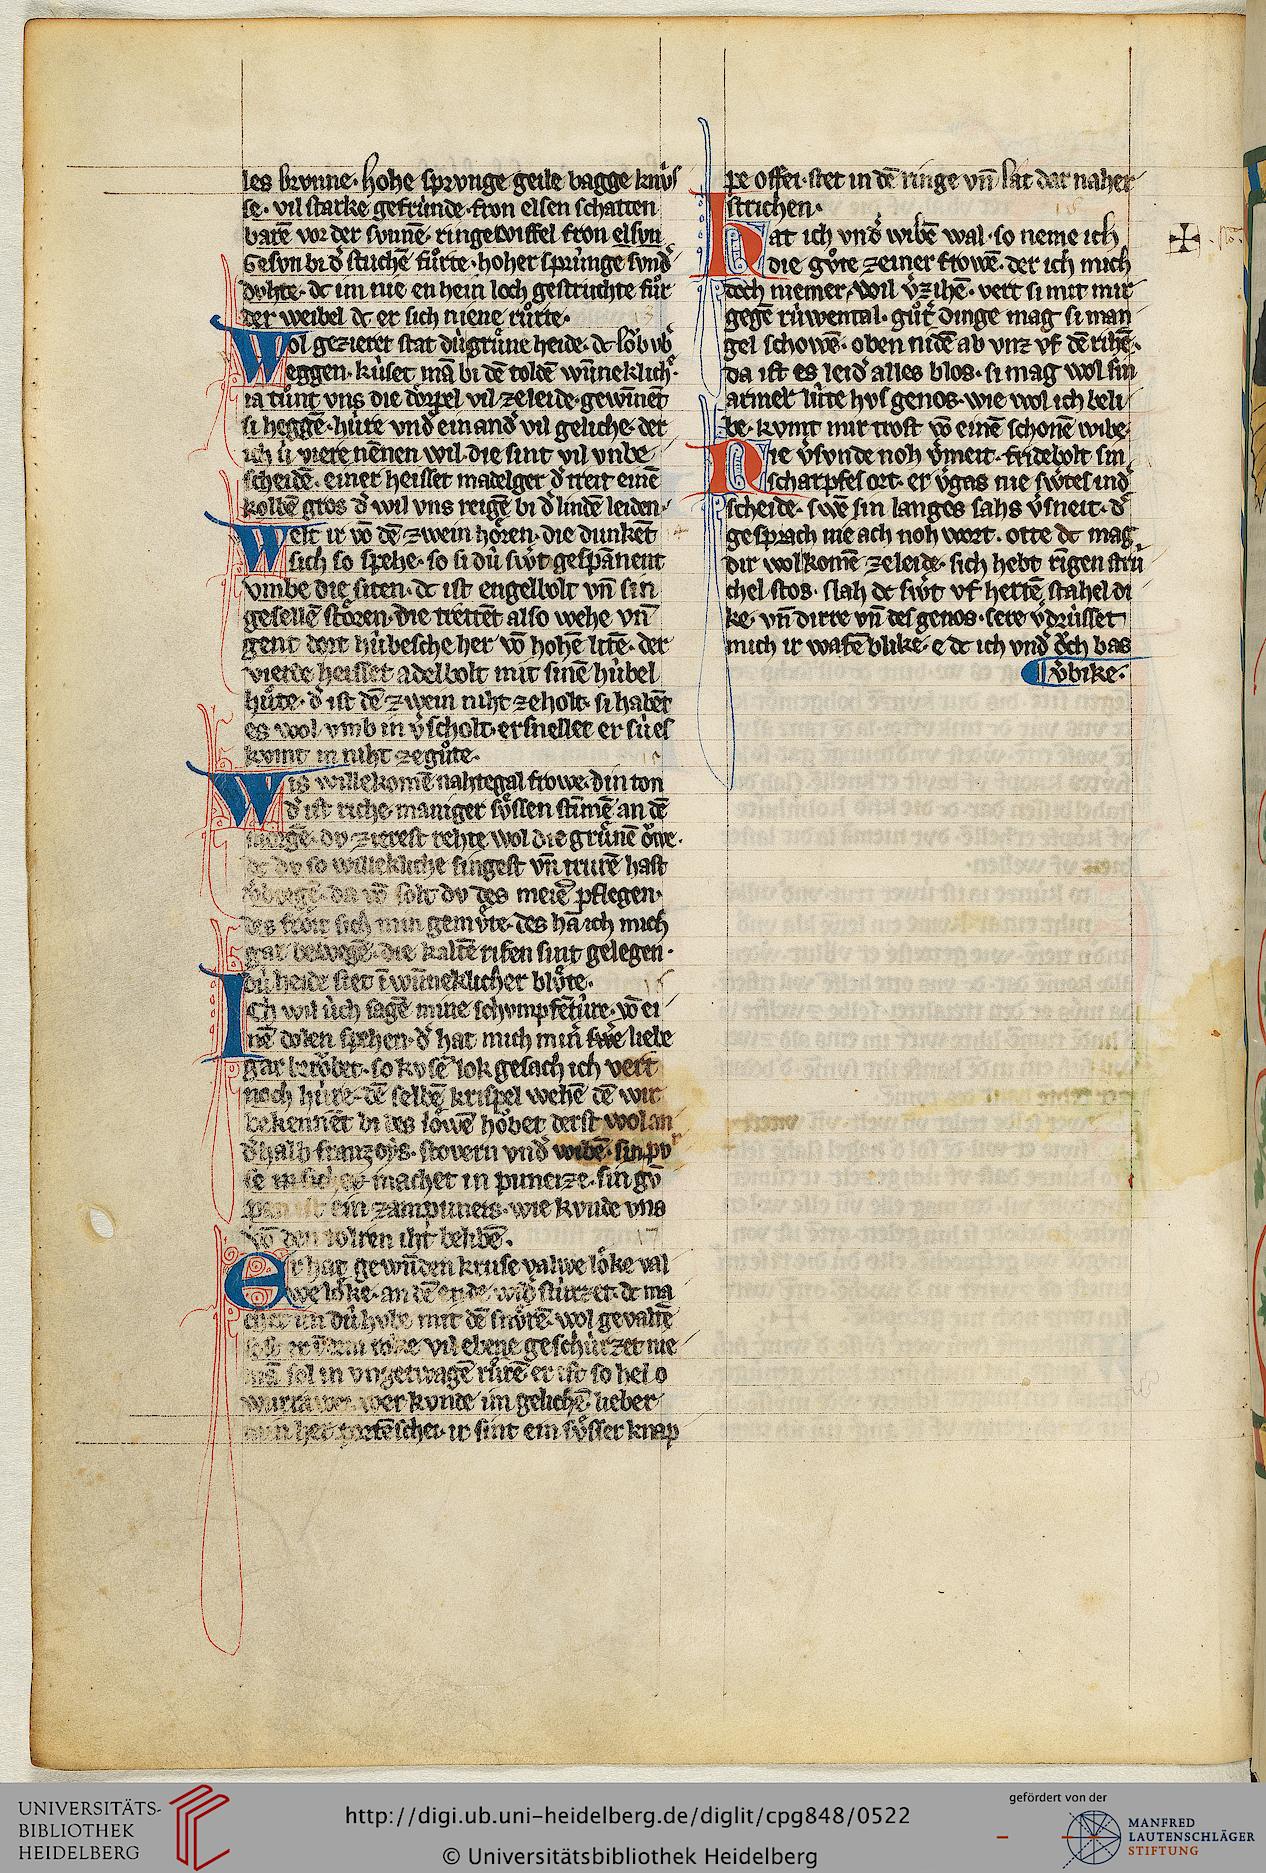 les brvnne· hohe sprvnge geile bagge knv́s
se· vil starke gefrv́nde· fron elsen schatten
barē vor der svnnē· ringe wiffel fron elsvn
Gesvn bi d̄ stuchē fůrte· hoher sprv́nge svnd̄
dvhte· dc im nie en hein loch gestruchte fúr
der weibel dc er sich niene růrte·
Wol gezieret stat dú grůne heide· dc lŏb vf
eggen· kúset mā bi dē toldē wúneklich·
ia tůnt vns die dŏrpel vil ze leide· gewinnēt
si heggē· húte vnd̄ ein and̄ vil geliche· der
ich si viere nēnen wil· die sint vil vnbe
scheidē· einer heisset madelger d̄ treit einē
kolbē gros d̄ wil vns reigē bi d̄ lindē leiden·
Welt ir vō dē zwein hŏren· die dunkēt
sich so spehe· so si dú swt́ gespānent
vmbe die siten· dc ist engelbolt vn̄ sin
gesellē stŏren· die trettēt also wehe vn̄
gent dort húbesche her vō hohē litē· der
vierde heisset adelbolt mit sinē húbel
hůte· d̄ ist dē zwein niht ze holt· si habēt
es wol vmb in v̄scholt· er snellet er súes
komt in niht ze gůte·
Wis willekomē nahtegal frowe· din ton
d̄ ist riche maniger sv́ssen stimē an dē
dv zierest rehte wol die grůnē ŏwe·
dc dv so willekliche singest vn̄ trurē hast
v̄borgē· da vō solt dv des meiē pflegen·
des frŏit sich min gemv́te· des hā ich mich
gar bewegē· die kaltē rifen sint gelegen·
dú heide stet ī wúneklicher blůte·
Ich wil úch sagē mine schvmpfētúre· vō ei
nē dolen spehen· d̄ hat mich minr̄ swe liebe
gar berŏbet· so kvsē lok gesach ich vert
noch húre· dē selbē krispel wehē dē wir
bekennēt bi des lŏwē hŏbet derst wol an
d̄halb franzoys· stovern vnd̄ wibē· sin pv
se machet in puneize· sin gv̄
ein zampuneis· wie kvnde vns
vō den iht belibē·
Er hat gewūden kruse valwe lŏke val
we lŏke· an dē ende wid̄ stúrzet· dc ma
chet im dú hvbe mit dē snv́rē· wol gevaltē
vil ebene geschúrzet nie
mā sol in vngetwagē růrē er ist so hel o
wer kvnde im gelichē· lieber
min her ir sint ein sv́sser knap
pe offei· stet in dē ringe vn̄ lat dar naher
strichen·
Hat ich vnd̄ wibē wal· so neme ich
die gv́te zeiner frowē· der ich mich
doch niemer, wil v̄zihē· vert si mit mir
gegē rúwental· gůt́ dinge mag si man
gel schowē· oben nidē ab vnz vf dē rihē·
da ist es leid̄ alles blos· si mag wol sin
armer lúte hvs genos· wie wol ich beli
be· kvmt mir trost vō einē schonē wibe·
Nie v̄svnde noh v̄meit· fridebolt sin
scharpfes ort· er v̄gas nie swt́es ind̄
scheide· swē sin langes sahs v̄sneit· d̄
gesprach nie ach noh wort· otte dc mag
dir wol komē ze leide· sich hebt v̄rigen strú
chel stos· slah dc swt́ vf hertē stahel di
ke· vn̄ dirre vn̄ des genos· sere v̄drússet
mich ir wafē blike· e dc ich vnd̄ dch bas
v̄bike·
UNIVERSITÄTS-
BIBLIOTHEK
HEIDELBERG
http://digi.ub.uni-heidelberg.de/diglit/cpg848/0522
© Universitätsbibliothek Heidelberg
gefördert von der
MANFRED
LAUTENSCHLÄGER
STIFTUNG